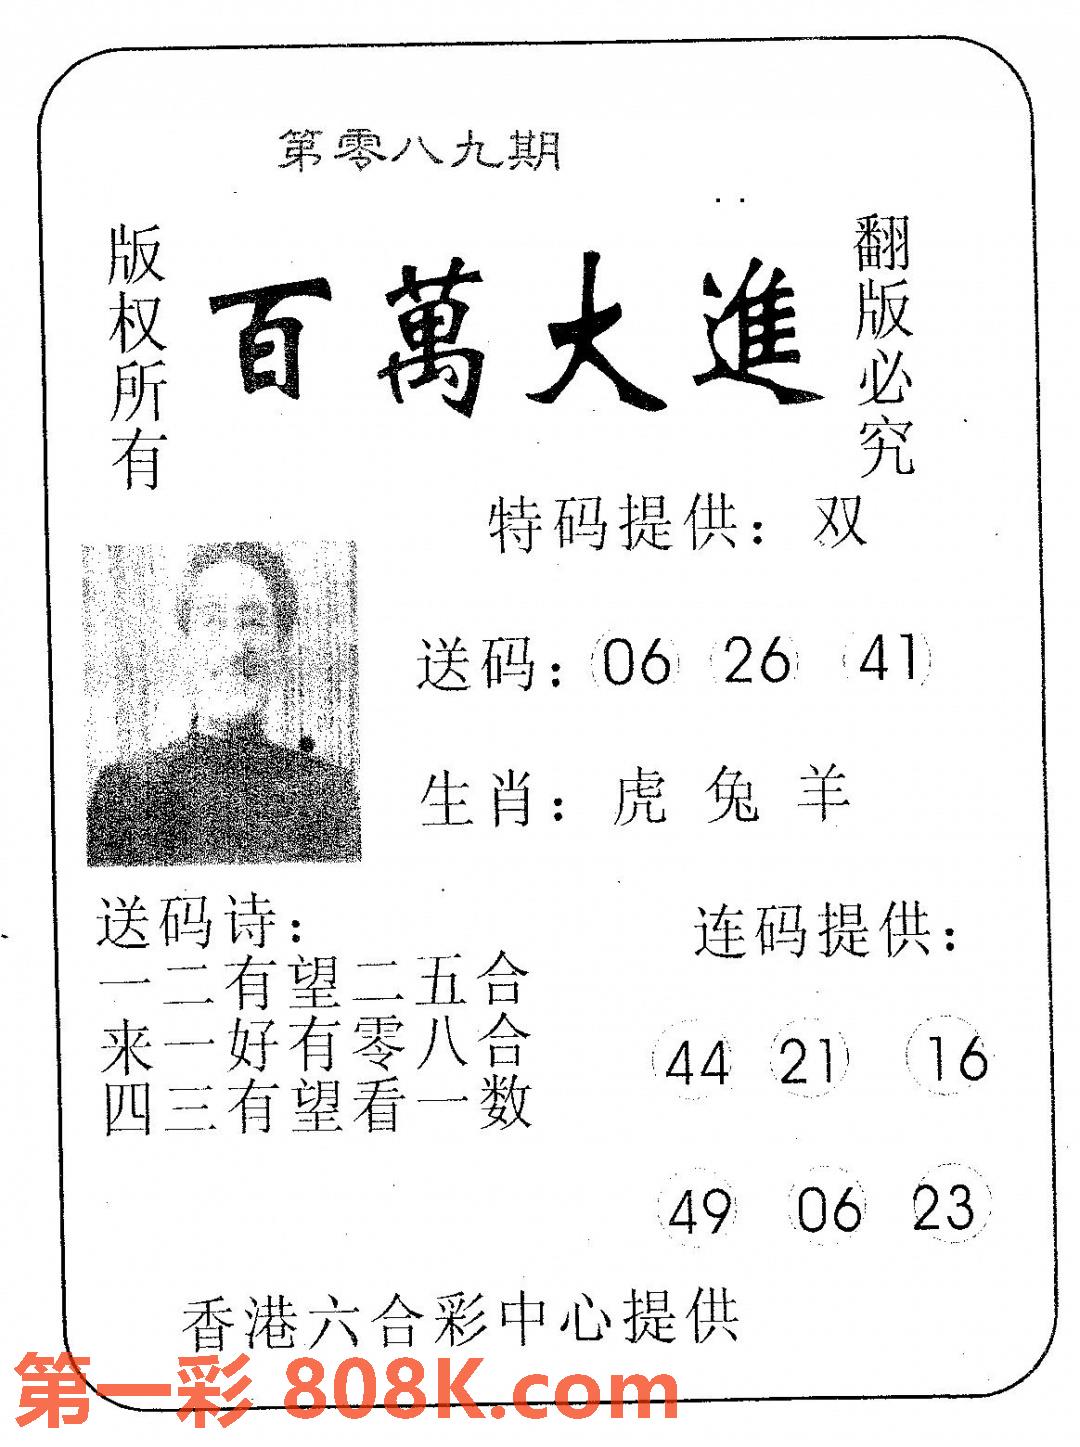 第零八九期
版权所有
百萬大進
翻版必究
特码提供：双
送码：06 26 41
生肖：虎 兔 羊
送码诗：
一二有望二五合
来一好有零八合
四三有望看一数
连码提供：
44 21 16
49 06 23
香港六合彩中心提供
第一彩 808K.com